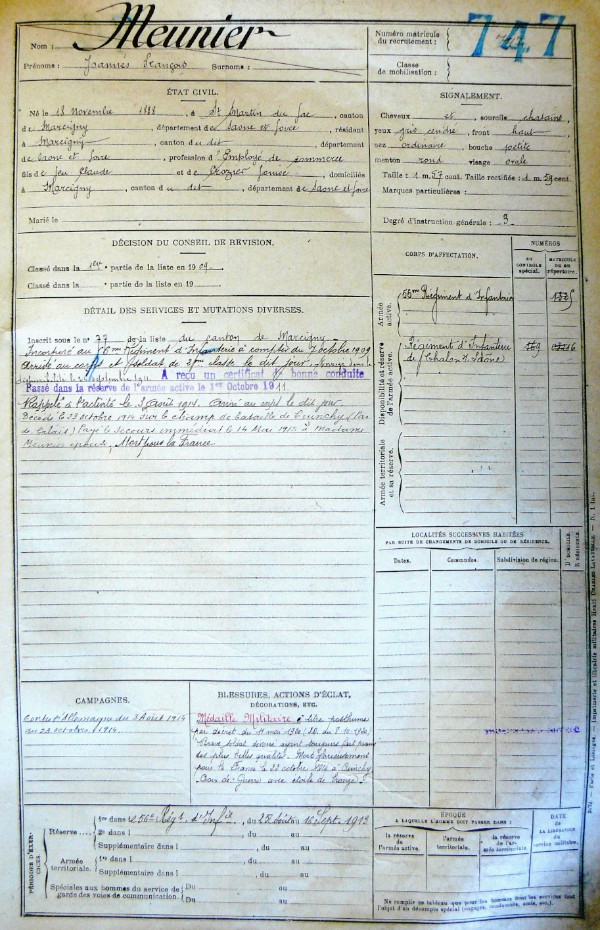 Nom : Meunier
Prénoms : Joannès François Surnoms :
Numéro matricule du recrutement : 747
Classe de mobilisation :
ÉTAT CIVIL.
Né le 18 novembre 1888, à St Martin du Lac, canton
de Marcigny, département de Saone et Loire, résidant
à Marcigny, canton du dit, département
de Saone et Loire, profession d'Employé de commerce
fils de feu Claude et de Crozier, domiciliés
à Marcigny, canton du dit, département de Saone et Loire
Marié le
SIGNALEMENT.
Cheveux et sourcils chatains,
yeux gris cendre, front haut,
nez ordinaire, bouche petite
menton rond visage ovale
Taille : 1 m. cent. Taille rectifiée : 1 m. cent.
Marques particulières :
Degré d'instruction générale : 3
DÉCISION DU CONSEIL DE RÉVISION.
Classé dans la 1re partie de la liste en 1909.
Classé dans la partie de la liste en 19
DÉTAIL DES SERVICES ET MUTATIONS DIVERSES.
Inscrit sous le n° 27 de la liste du canton de Marcigny
Incorporé au 56me Régiment d'Infanterie à compter du 7 octobre 1909
Arrivé au corps et soldat de 2me classe le dit jour.
A reçu un certificat de bonne conduite
Passé dans la réserve de l'armée active le 1er Octobre 1911
Rappelé à l'activité le 3 Août 1914. Arrivé au corps le dit jour
Décédé le 23 octobre 1914 sur le champ de bataille de Cuinchy (Pas
de Calais) Payé le secours immédiat le 14 Mai 1915 à Madame
Meunier épouse, Mort pour la France
CORPS D'AFFECTATION.
NUMÉROS
AU CONTRÔLE spécial.
MATRICULE OU DU RÉPERTOIRE.
Armée active.
56me Régiment d'Infanterie
Disponibilité et réserve de l'armée active.
Régiment d'Infanterie
de Chalon s. Saône
Armée territoriale et sa réserve.
LOCALITÉS SUCCESSIVES HABITÉES
PAR SUITE DE CHANGEMENTS DE DOMICILE OU DE RÉSIDENCE.
Dates.
Communes.
Subdivision de région.
D. DOMICILE.
R. RÉSIDENCE.
CAMPAGNES.
Contre l'Allemagne du 3 Août 1914
au 23 octobre 1914.
BLESSURES, ACTIONS D'ÉCLAT,
DÉCORATIONS, ETC.
Médaille Militaire à titre posthume
par décret du
Brave soldat ayant toujours fait preuve
des plus belles qualités. Mort glorieusement
pour la France le 23 octobre 1914 à Cuinchy
Croix de Guerre avec étoile de bronze
PÉRIODES D'EXERCICES
Réserve
1re dans le 56e Régt d'Infie, du 25 Août au 16 Sept. 1913
2e dans l , du au
Supplémentaire dans l , du au
Armée territoriale
1re dans l , du au
Supplémentaire dans l , du au
Spéciales aux hommes du service de garde des voies de communication.
Du au Du au
Du au Du au
ÉPOQUE
A LAQUELLE L'HOMME DOIT PASSER DANS :
la réserve de l'armée active.
l'armée territoriale.
la réserve de l'armée territoriale.
DATE
de
LA LIBÉRATION
du service militaire.
Ne remplir ce tableau que pour les hommes dont les services font l'objet d'un décompte spécial (engagés, condamnés, omis, etc.).